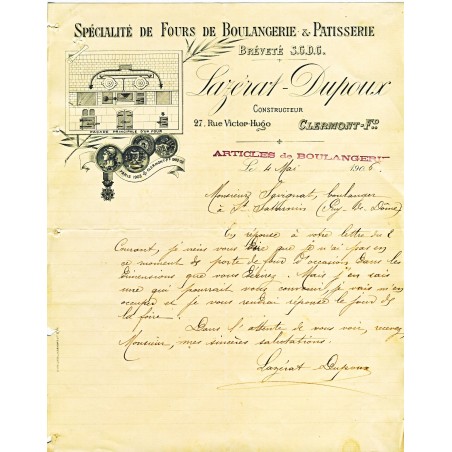 SPÉCIALITÉ DE FOURS DE BOULANGERIE & PATISSERIE
BRÉVETÉ S.G.D.G.
Lazérat-Dupoux
CONSTRUCTEUR
27, Rue Victor-Hugo CLERMONT-Fd
FAÇADE PRINCIPALE D'UN FOUR
PARIS 1902
ARTICLES de BOULANGERIE
Le 4 Mai 1906.
Monsieur, boulanger
à St Saturnin (Puy-de-Dôme)
En réponse à votre lettre du 2
Courant, je viens vous dire que je n'ai pas en
ce moment de porte de four d'occasion dans les
dimensions que vous. Mais j'en sais
une qui pourrait vous convenir, je vais m'en
occuper et je vous rendrai réponse le jour de
la foire.
Dans l'attente de vous voir, recevez,
Monsieur, mes sincères salutations.
Lazérat Dupoux